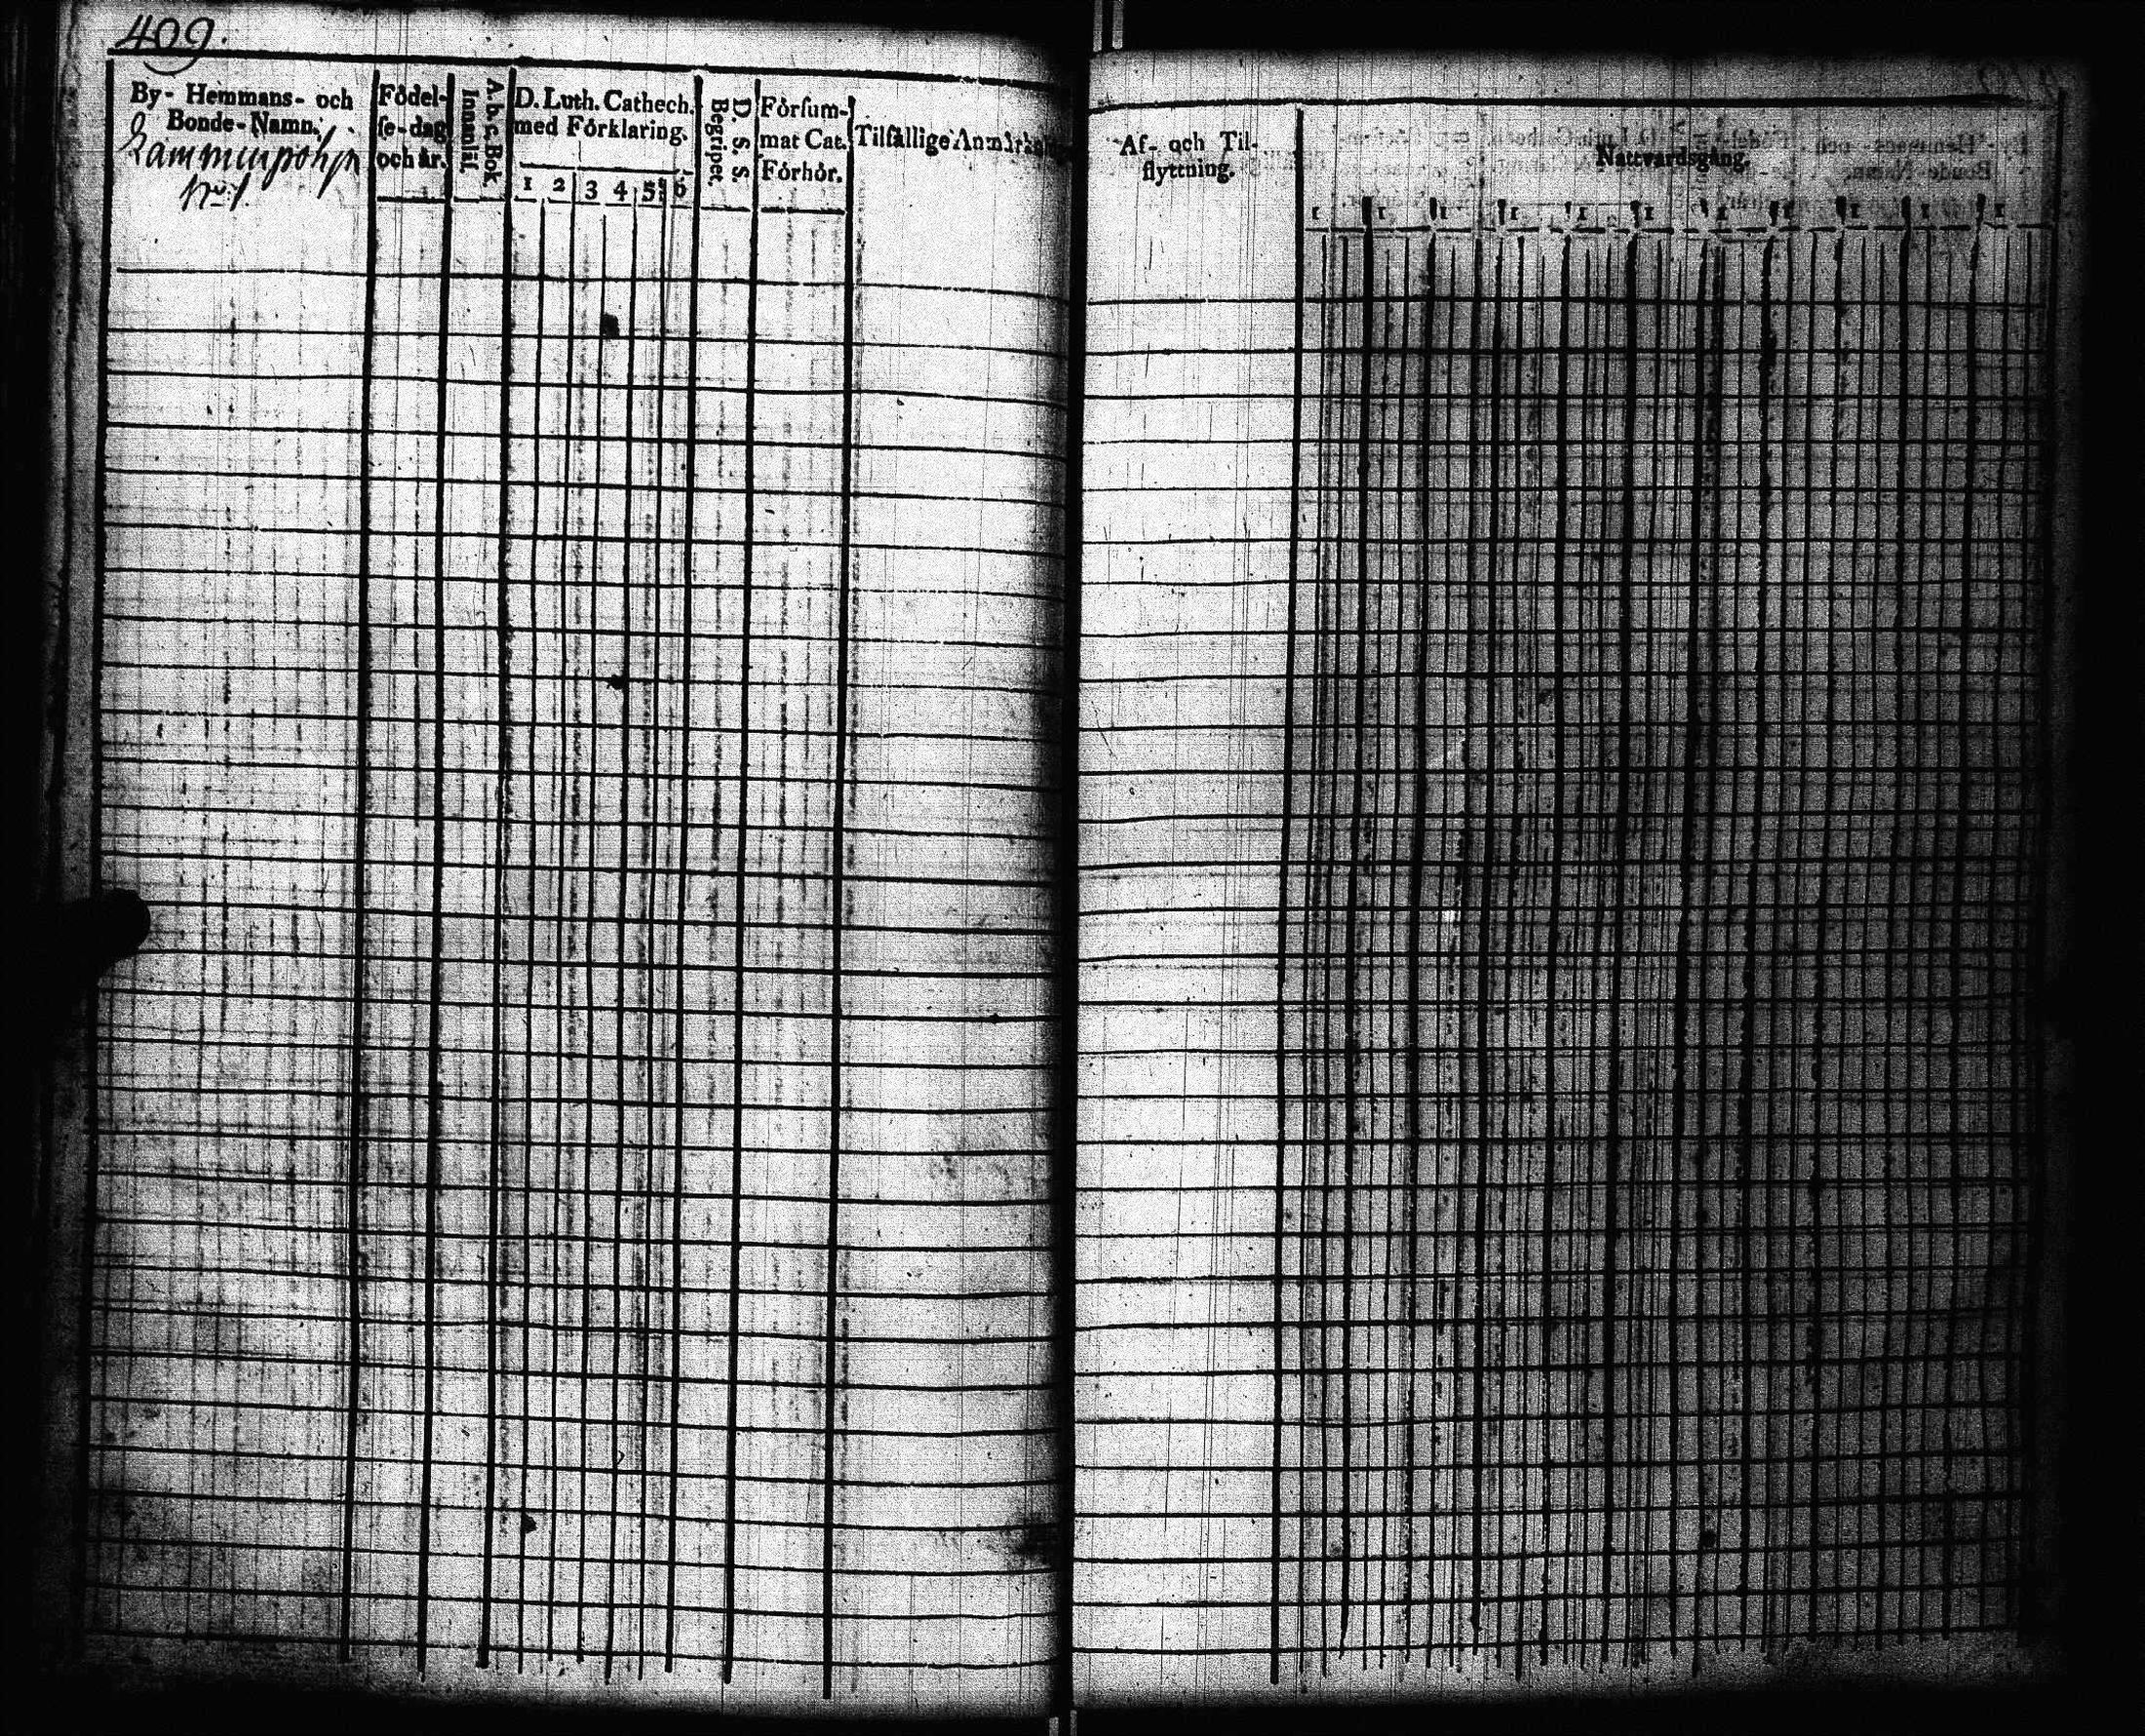 409.
By- Hemmans- och
Bonde-Namn.
Lammenpohja
No 1.
Födel-
ſe-dag
och år.
A. b. c. Bok.
Innantil.
D. Luth. Cathech.
med Förklaring.
1 2 3 4 5 6
D. S. S.
Begripet.
Förſum-
mat Cat.
Förhör.
Tilfällige Anmärkn
Af- och Til-
flyttning.
Nattvardsgång.
1 1 1 1 1 1 1 1 1 1 1